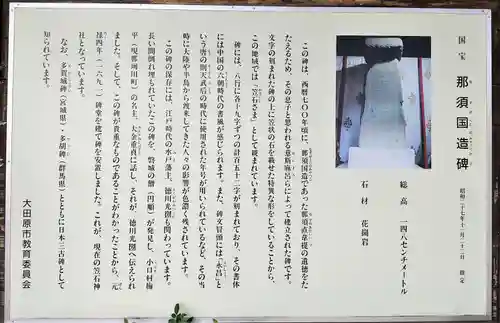 国宝 那須国造碑 昭和二十七年十一月二十二日 指定
総高 一四八センチメートル
石材 花崗岩
この碑は、西暦七〇〇年頃に、那須国造であった那須直韋提の遺徳をた
たえるため、その息子と思われる意斯麻呂らによって建立された碑です。
文字の刻まれた碑の上に笠状の石を載せた特異な形をしていることから、
この地域では「笠石さま」として親しまれています。
碑には、八行に各十九字ずつの計百五十二字が刻まれており、その書体
には中国の六朝時代の書風が感じられます。また、碑文冒頭には「永昌」と
いう唐の則天武后の時代に使用された年号が用いられているなど、その当
時に大陸や半島から渡来してきた人々の影響が色濃く残されています。
この碑の保存には、江戸時代の水戸藩主、徳川光圀も関わっています。
長い間倒れ埋もれていたこの碑を、磐城の僧(円順)が発見し、小口村梅
平(現那珂川町)の名主、大金重貞に話し、それが、徳川光圀へ伝えられ
ました。そして、この碑が貴重なものであることがわかったことから、元
禄四年(一六九一)碑堂を建て碑を安置しました。これが、現在の笠石神
社となっています。
なお、多賀城碑(宮城県)・多胡碑(群馬県)とともに日本三古碑として
知られています。
大田原市教育委員会